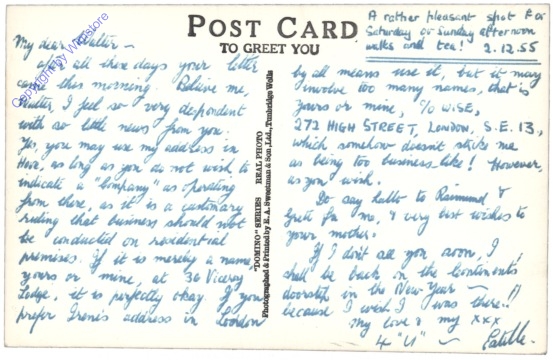 POST CARD
TO GREET YOU
A rather pleasant spot for
Saturday or Sunday afternoon
walks and tea! 2.12.55
My dear Walter ~
after all these days your letter
came this morning. Believe me,
Walter I feel so very despondent
with so little news from you.
Yes, you may use my address in
Hove, as long as you do not wish to
indicate a "Company" as operating
from there, as it is a customary
ruling that business should not
be conducted on residential
premises. If it is merely a name,
yours or mine, at 36 Viceroy
Lodge, it is perfectly okay. If you
prefer Irene's address in London
"DOMINO" SERIES REAL PHOTO
Photographed & Printed by E. A. Sweetman & Son, Ltd., Tunbridge Wells
by all means use it, but it may
involve too many names, that is
yours or mine, c/o WISE,
272 HIGH STREET, LONDON, S.E.13,
which somehow doesn't strike me
as being too business-like! However,
as you wish.
Do say hallo to Raimund &
Gretl for me, & very best wishes to
your mother.
If I don't see you soon, I
shall be back on the Continent's
doorstep in the New Year ~
because I wish I was there!!
My love & my xxx
4 "U" ~ Estelle.